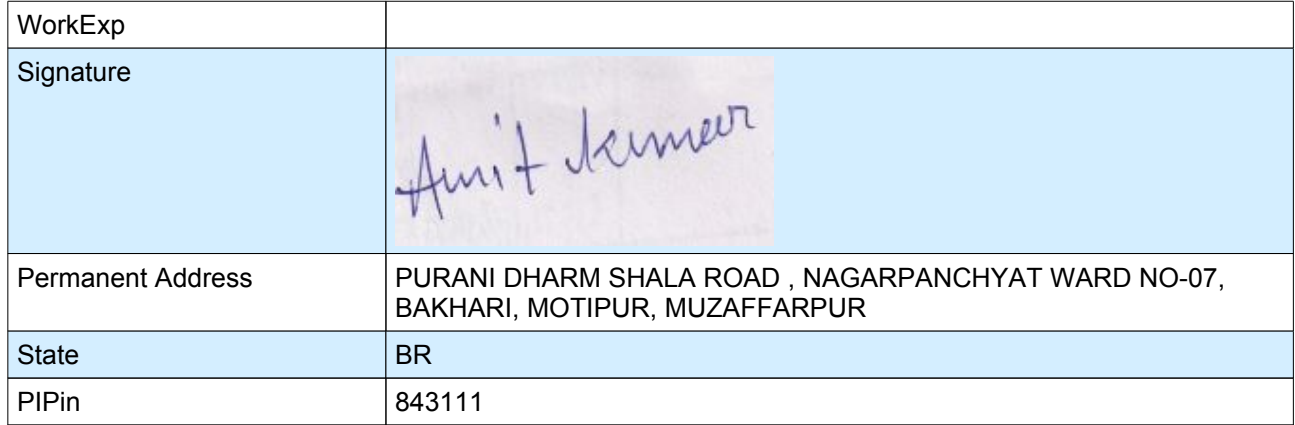 WorkExp
Signature
Amit kumar
Permanent Address
PURANI DHARM SHALA ROAD , NAGARPANCHYAT WARD NO-07,
BAKHARI, MOTIPUR, MUZAFFARPUR
State
BR
PIPin
843111